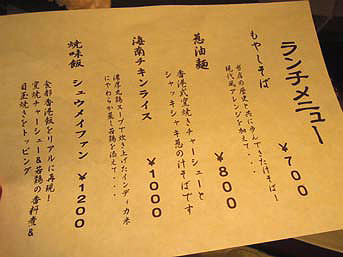 ランチメニュー
もやしそば
¥700
当店の歴史と共に歩んできた汁そばー
現代風アレンジを加えて・・・
葱油麺
¥800
香港式窯焼きチャーシューと
シャッキシャキ葱の汁そばです
海南チキンライス
¥1000
濃厚丸鶏スープで炊き上げたインディカ米
にやわらか蒸し若鶏を添えて・・・
焼味飯
シュウメイファン
¥1200
食都香港飯をリアルに再現!
窯焼チャーシュー&若鶏の香料煮&
目玉焼きをトッピング